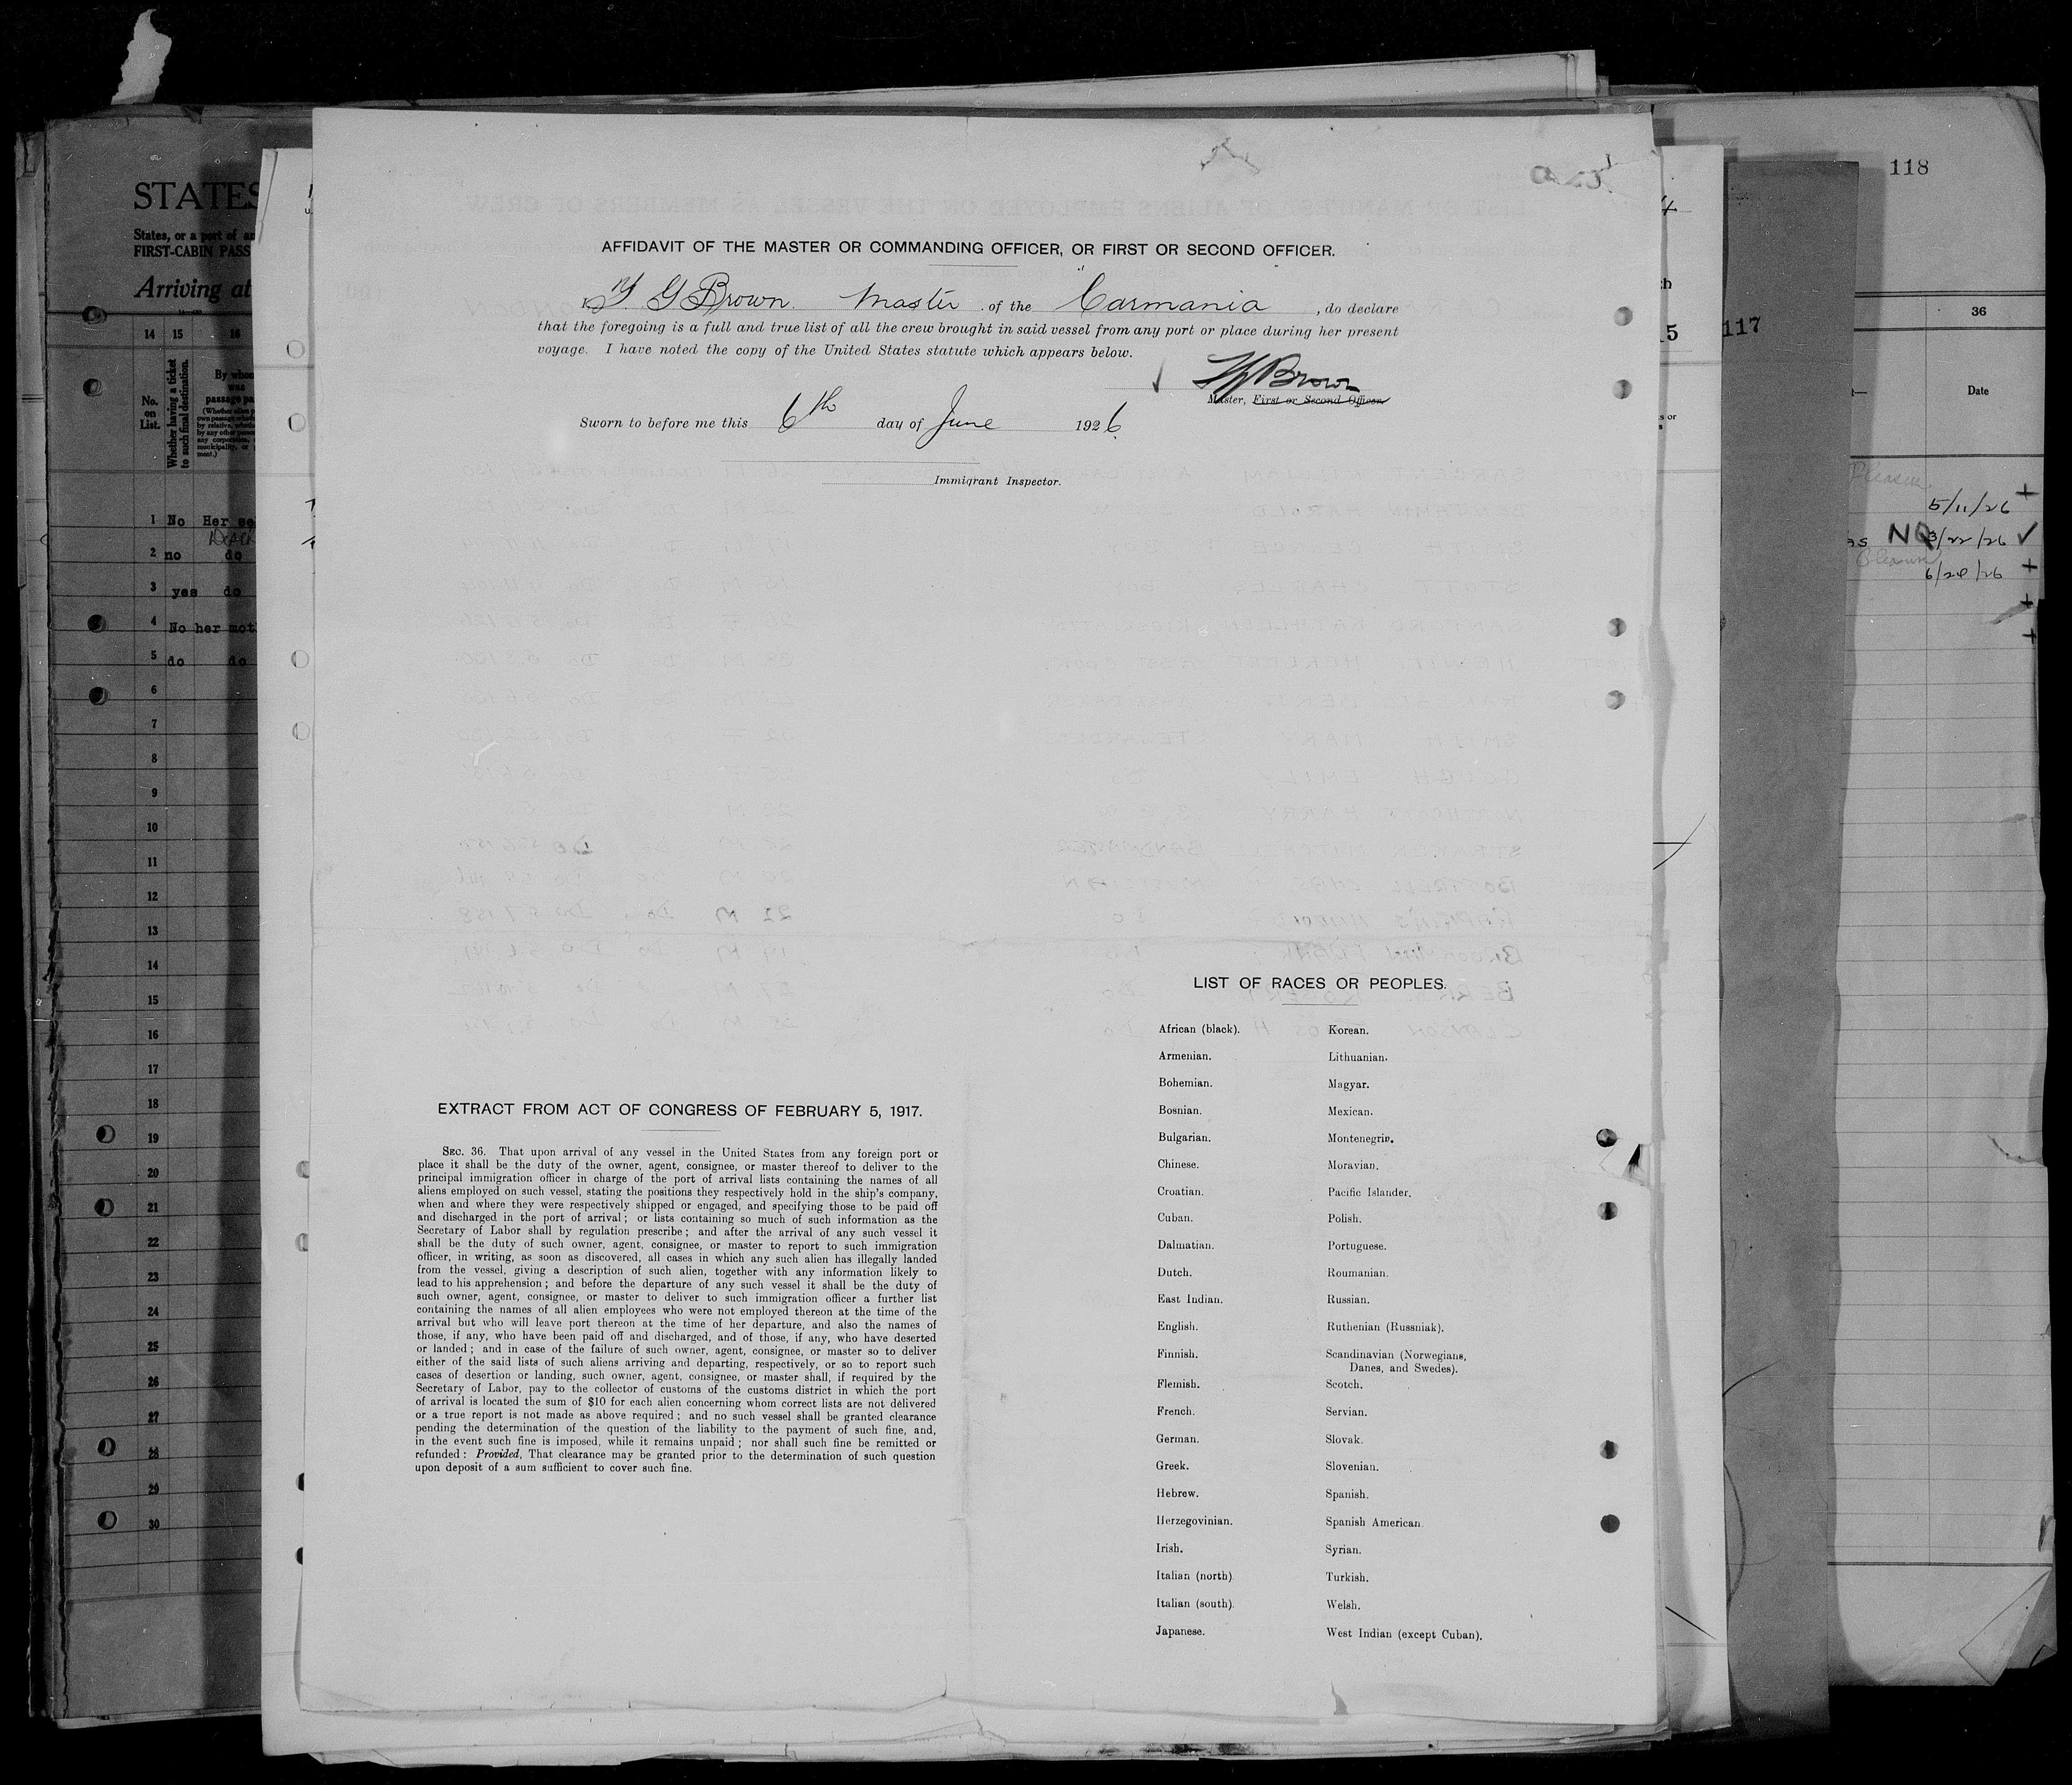 AFFIDAVIT OF THE MASTER OR COMMANDING OFFICER, OR FIRST OR SECOND OFFICER.
I, G Brown. Master of the Carmania, do declare
that the foregoing is a full and true list of all the crew brought in said vessel from any port or place during her present
voyage. I have noted the copy of the United States statute which appears below.
Brown
Master, First or Second Officer.
Sworn to before me this 6th day of June 1926
Immigrant Inspector.
EXTRACT FROM ACT OF CONGRESS OF FEBRUARY 5, 1917.
SEC. 36. That upon arrival of any vessel in the United States from any foreign port or
place it shall be the duty of the owner, agent, consignee, or master thereof to deliver to the
principal immigration officer in charge of the port of arrival lists containing the names of all
aliens employed on such vessel, stating the positions they respectively hold in the ship's company,
when and where they were respectively shipped or engaged, and specifying those to be paid off
and discharged in the port of arrival; or lists containing so much of such information as the
Secretary of Labor shall by regulation prescribe; and after the arrival of any such vessel it
shall be the duty of such owner, agent, consignee, or master to report to such immigration
officer, in writing, as soon as discovered, all cases in which any such alien has illegally landed
from the vessel, giving a description of such alien, together with any information likely to
lead to his apprehension; and before the departure of any such vessel it shall be the duty of
such owner, agent, consignee, or master to deliver to such immigration officer a further list
containing the names of all alien employees who were not employed thereon at the time of the
arrival but who will leave port thereon at the time of her departure, and also the names of
those, if any, who have been paid off and discharged, and of those, if any, who have deserted
or landed; and in case of the failure of such owner, agent, consignee, or master so to deliver
either of the said lists of such aliens arriving and departing, respectively, or so to report such
cases of desertion or landing, such owner, agent, consignee, or master shall, if required by the
Secretary of Labor, pay to the collector of customs of the customs district in which the port
of arrival is located the sum of $10 for each alien concerning whom correct lists are not delivered
or a true report is not made as above required; and no such vessel shall be granted clearance
pending the determination of the question of the liability to the payment of such fine, and,
in the event such fine is imposed, while it remains unpaid; nor shall such fine be remitted or
refunded: Provided, That clearance may be granted prior to the determination of such question
upon deposit of a sum sufficient to cover such fine.
LIST OF RACES OR PEOPLES.
African (black). Korean.
Armenian. Lithuanian.
Bohemian. Magyar.
Bosnian. Mexican.
Bulgarian. Montenegrin.
Chinese. Moravian.
Croatian. Pacific Islander.
Cuban. Polish.
Dalmatian. Portuguese.
Dutch. Roumanian.
East Indian. Russian.
English. Ruthenian (Russniak).
Finnish. Scandinavian (Norwegians,
Danes, and Swedes).
Flemish. Scotch.
French. Servian.
German. Slovak.
Greek. Slovenian.
Hebrew. Spanish.
Herzegovinian. Spanish American.
Irish. Syrian.
Italian (north). Turkish.
Italian (south). Welsh.
Japanese. West Indian (except Cuban).
STATES
States, or a port of
FIRST-CABIN PASS
Arriving at
14 15 16
No.
on
List.
Whether having a ticket
to such final destination.
By whom
was
passage
1 No Her
2 no do
3 yes do
4 No her
5 do do
6
7
8
9
10
11
12
13
14
15
16
17
18
19
20
21
22
23
24
25
26
27
28
29
30
118
117
5
36
Date
5/11/26
NO 3/22/26